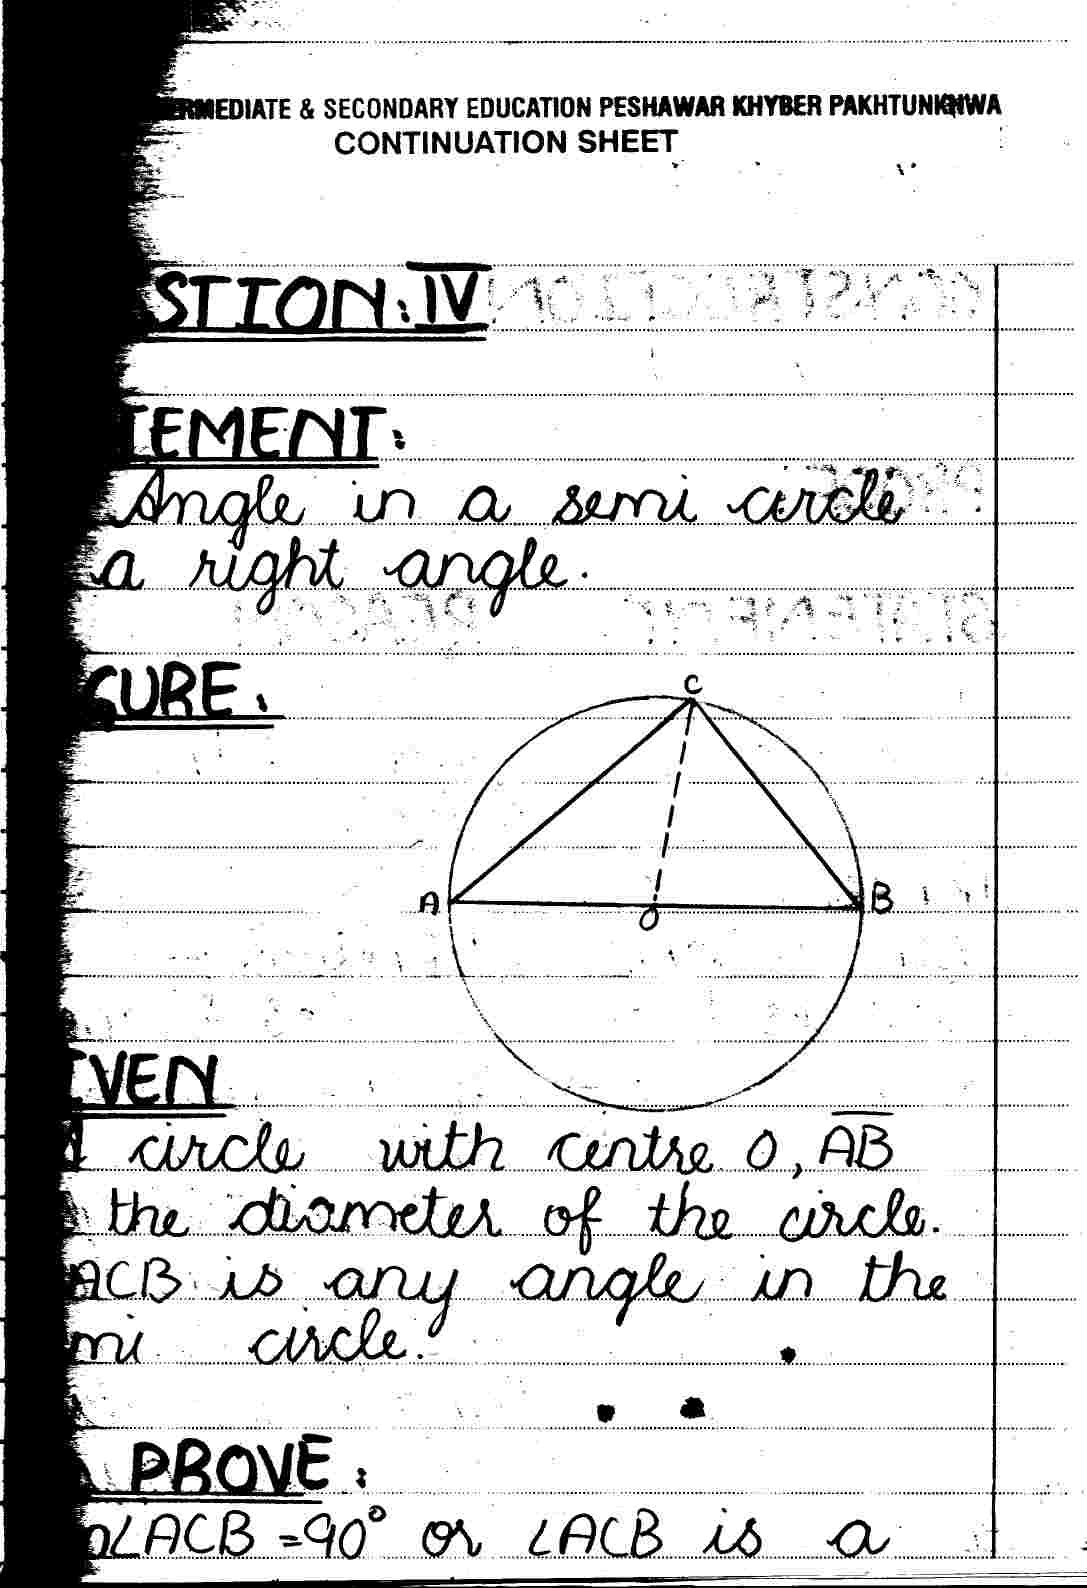 INTERMEDIATE & SECONDARY EDUCATION PESHAWAR KHYBER PAKHTUNKHWA
CONTINUATION SHEET
STION: IV
TEMENT:
Angle in a semi circle
a right angle.
GURE:
C
A
B
O
IVEN
A circle with centre O, AB
the diameter of the circle.
ACB is any angle in the
mi circle.
PROVE:
m∠ACB = 90° or ∠ACB is a